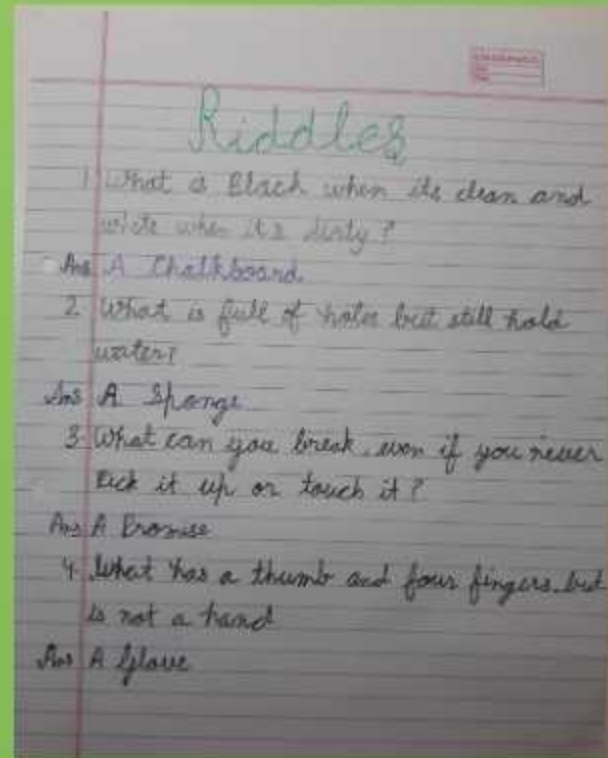 Riddles
1 What is Black when its clean and
white when its dirty?
Ans A Chalkboard
2 What is full of holes but still hold
water?
Ans A Sponge
3. What can you break, even if you never
Pick it up or touch it?
Ans A Promise
4. What has a thumb and four fingers but
is not a hand
Ans A Glove